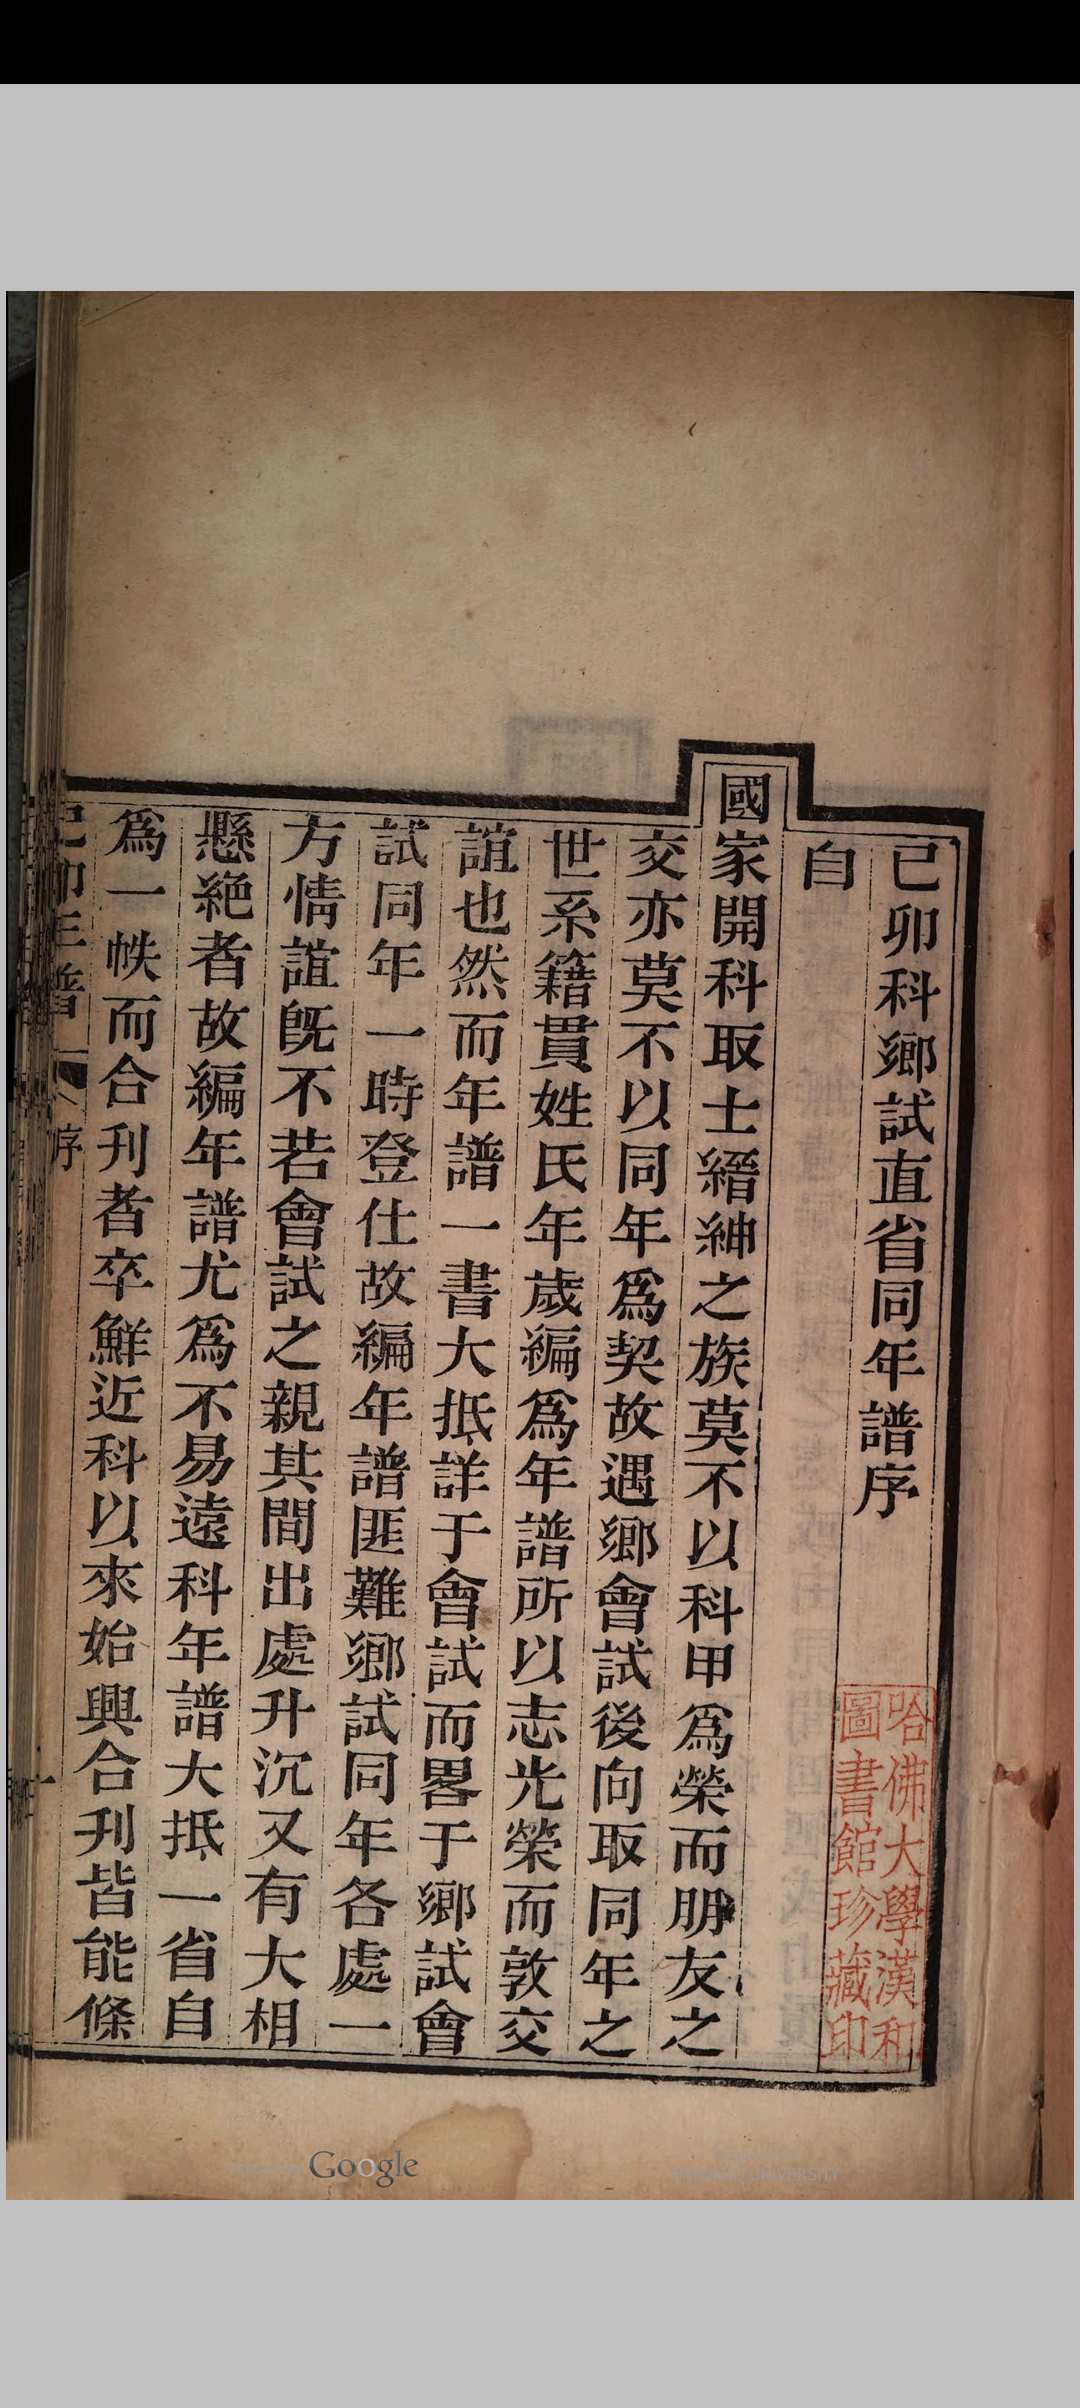 己卯科鄉試直省同年譜序
自
國家開科取士縉紳之族莫不以科甲爲榮而朋友之
交亦莫不以同年爲契故遇鄉會試後向取同年之
世系籍貫姓氏年歲編爲年譜所以志光榮而敦交
誼也然而年譜一書大抵詳于會試而畧于鄉試會
試同年一時登仕故編年譜匪難鄉試同年各處一
方情誼旣不若會試之親其間出處升沉又有大相
懸絶者故編年譜尤爲不易遠科年譜大抵一省自
爲一帙而合刊者卒鮮近科以來始興合刊皆能條
己卯年譜
序
一
哈佛大學漢和
圖書館珍藏印
Google
UNIVERSITY